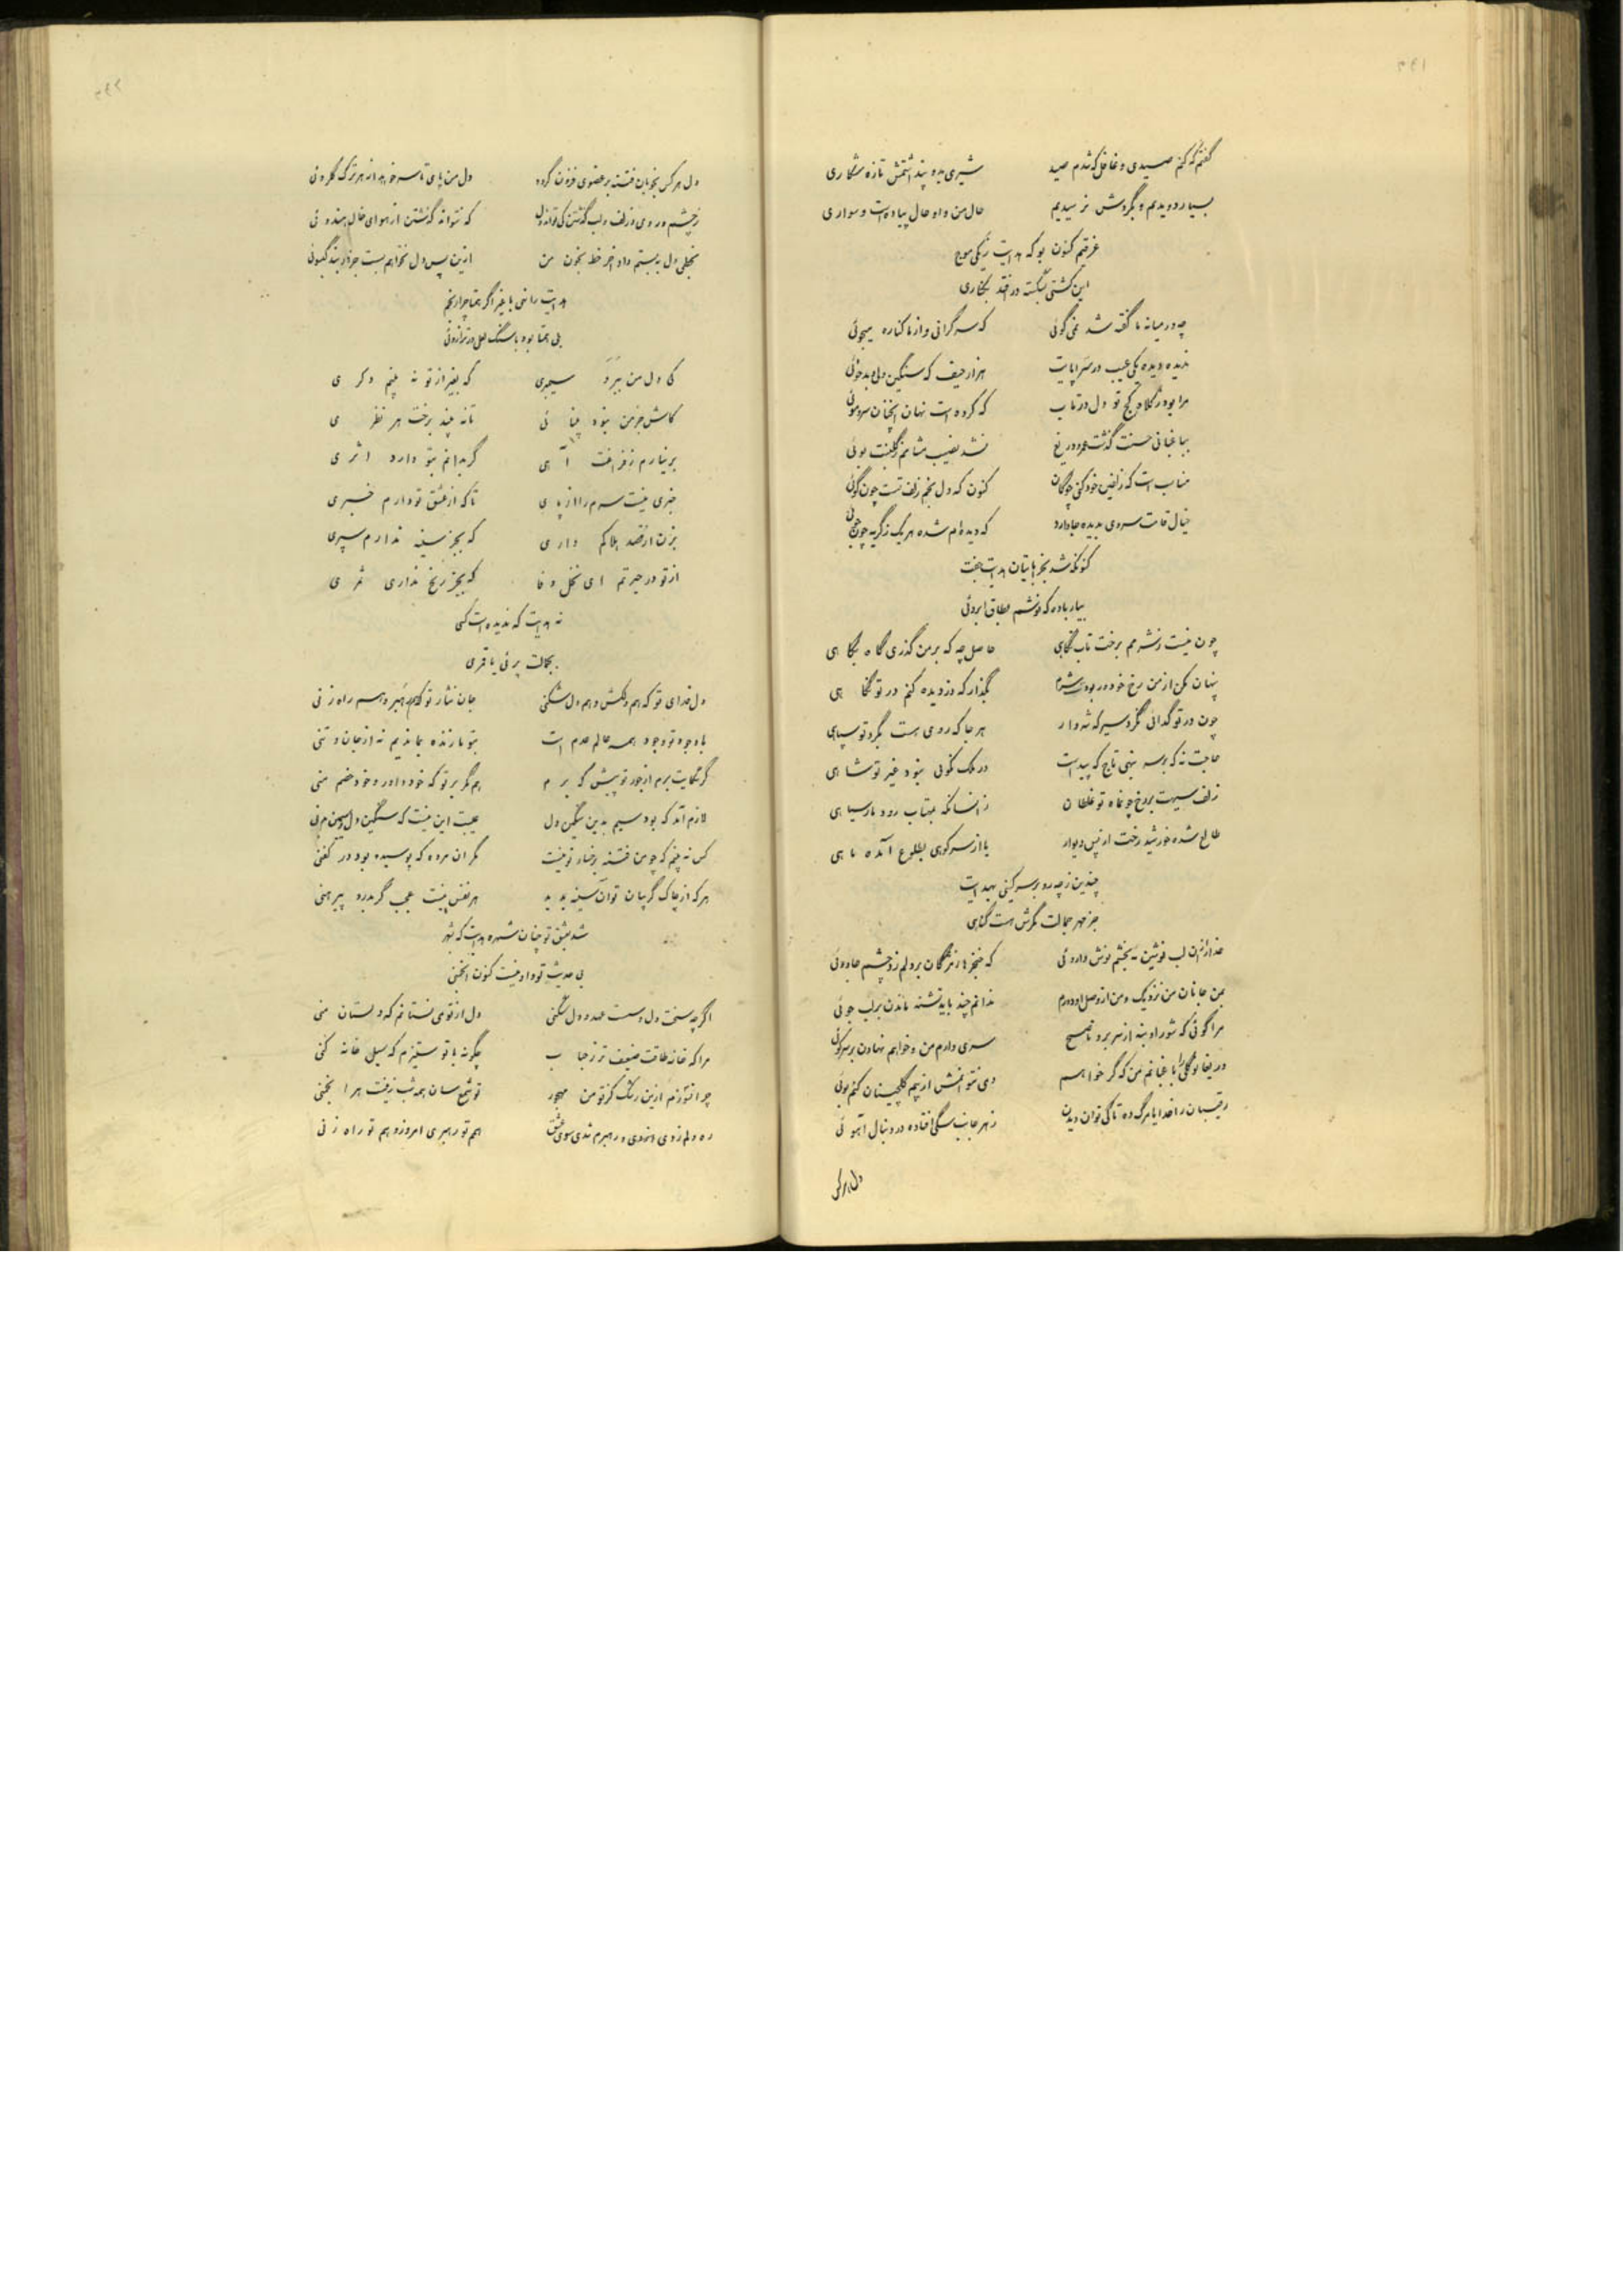 گفتم که کنم صیدی و غافل که شدم صید شیری بده پنداشتمش تازه شکاری
بسیار دویدیم و بگردش نرسیدیم حال من و او حال پیاده است و سواری
غرقیم کنون بو که هدایت ز یکی موج
این کشتی بشکسته در افتد بکناری
چه در میانه ما گفته شد نمی گوئی که سرگرانی و از ما کناره میجوئی
ندیده دیده یکی عیب در سراپایت هزار حیف که سنگین دل و بدخوئی
مرا بود ز کلاه کج تو دل در تاب که کرده است نهان آنچنان سر موئی
بباغبانی حسنت گذشت عمر و دریغ نشد نصیب مشامم ز گلبنت بوئی
مناسب است که از زلف خود کنی چوگان کنون که دل بخم زلف تست چون گوئی
خیال قامت سروی بدیده جا دارد که دیده ام شده هر یک ز گریه چون جوئی
کنونکه شد بخراباتیان هدایت جفت
بیار باده که نوشم بطاق ابروئی
چون نیست ز شرمم برخت تاب نگاهی حاصل چه که بر من گذری گاه بگاهی
پنهان مکن از من رخ خود در بود شرم بگذار که دزدیده کنم در تو نگاهی
چون در تو گدائی نگرد سیر که شه وار هر جا که روی هست بگرد تو سپاهی
حاجت نه که بر سر بنهی تاج که پیداست در ملک نکوئی نبود غیر تو شاهی
زلف سیهت بر رخ چون ماه تو غلطان زانسانکه بمهتاب رود مار سیاهی
طالع شده خورشید رخت از پس دیوار یا از سر کوهی بطلوع آمده ماهی
چندین ز چه رو بر سر کینی بهدایت
جز مهر جمالت مگرش هست گناهی
خدا را زان لب نوشین ببخشم نوش داروئی که خنجرها ز مژگان بر دلم زد چشم جادوئی
بمن جانان من نزدیک و من از وصل او دورم ندانم چند باید تشنه ماندن بر لب جوئی
مرا گوئی که شور او بنه از سر برو ناصح سری دارم من و خواهم نهادن بر سر کوئی
دریغا نو گلی را باغبانم من که گر خواهم دمی نتوانمش از بیم گلچینان کنم بوئی
رقیبان را خدایا مرگ ده تا کی توان دیدن ز هر جانب سگی افتاده در دنبال آهوئی
دل هر کس
دل هر کس بخوبان فتنه بر عضوی فزون گردد دل من پای تا سر خواهد از هر ترک گلروئی
ز چشم و روی و زلف و لب گذشتن کی تواند دل که نتواند گذشتن از هوای خال هندوئی
بخطی دل ببستم داد آخر خط بخون من ازین پس دل نخواهم بست جز در بند گیسوئی
هدایت را نهی با غیر اگر همتا چرا رنجم
بلی همتا بود با سنگ لعل در ترازوئی
کی دل من ببرد سیمبری که بغیر از تو نه بینم دگری
کاش جز من نبود بینائی تا نه بیند برخت هر نظری
بر نیارم ز فراقت آهی گر بدانم بتو دارد اثری
خبری نیست سرم را از پای تا که از عشق تو دارم خبری
بزن ار قصد هلاکم داری که بجز سینه ندارم سپری
از تو در حیرتم ای نخل وفا که بجز رنج نداری ثمری
نه هدایت که ندیده است کسی
بجمالت پرئی یا قمری
دل فدای تو که هم دلکش و هم دل شکنی جان نثار تو که هم رهبر و هم راه زنی
با وجود تو وجود همه عالم عدم است بتو ما زنده بماندیم نه از جان و تنی
گر شکایت برم از جور تو پیش که برم هم مگر بر تو که خود داور و خود خصم منی
لازم آمد که بود سیم بدین سنگین دل عیبت این نیست که سنگین دل و سیمین ذقنی
کس نه بینم که چو من فتنه رخسار تو نیست مگر آن مرده که پوسیده بود در کفنی
هر که از چاک گریبان تو آن سینه بدید هر نفس نیست عجب گر بدرد پیرهنی
شد بعشق تو چنان شهره هدایت که بشهر
بی حدیث تو و او نیست کنون انجمنی
اگر چه سخت دل و سست عهد و دل شکنی دل از تو می نستانم که دلستان منی
مرا که خانه طاقت ضعیف تر ز حباب چگونه با تو ستیزم که سیل خانه کنی
چرا نسوزم ازین رشک کز تو من مهجور تو شمع سان همه شب زینت هر انجمنی
ره دلم زدی از دی و رهبرم شدی سوی عشق هم تو رهبری امروز و هم تو راه زنی